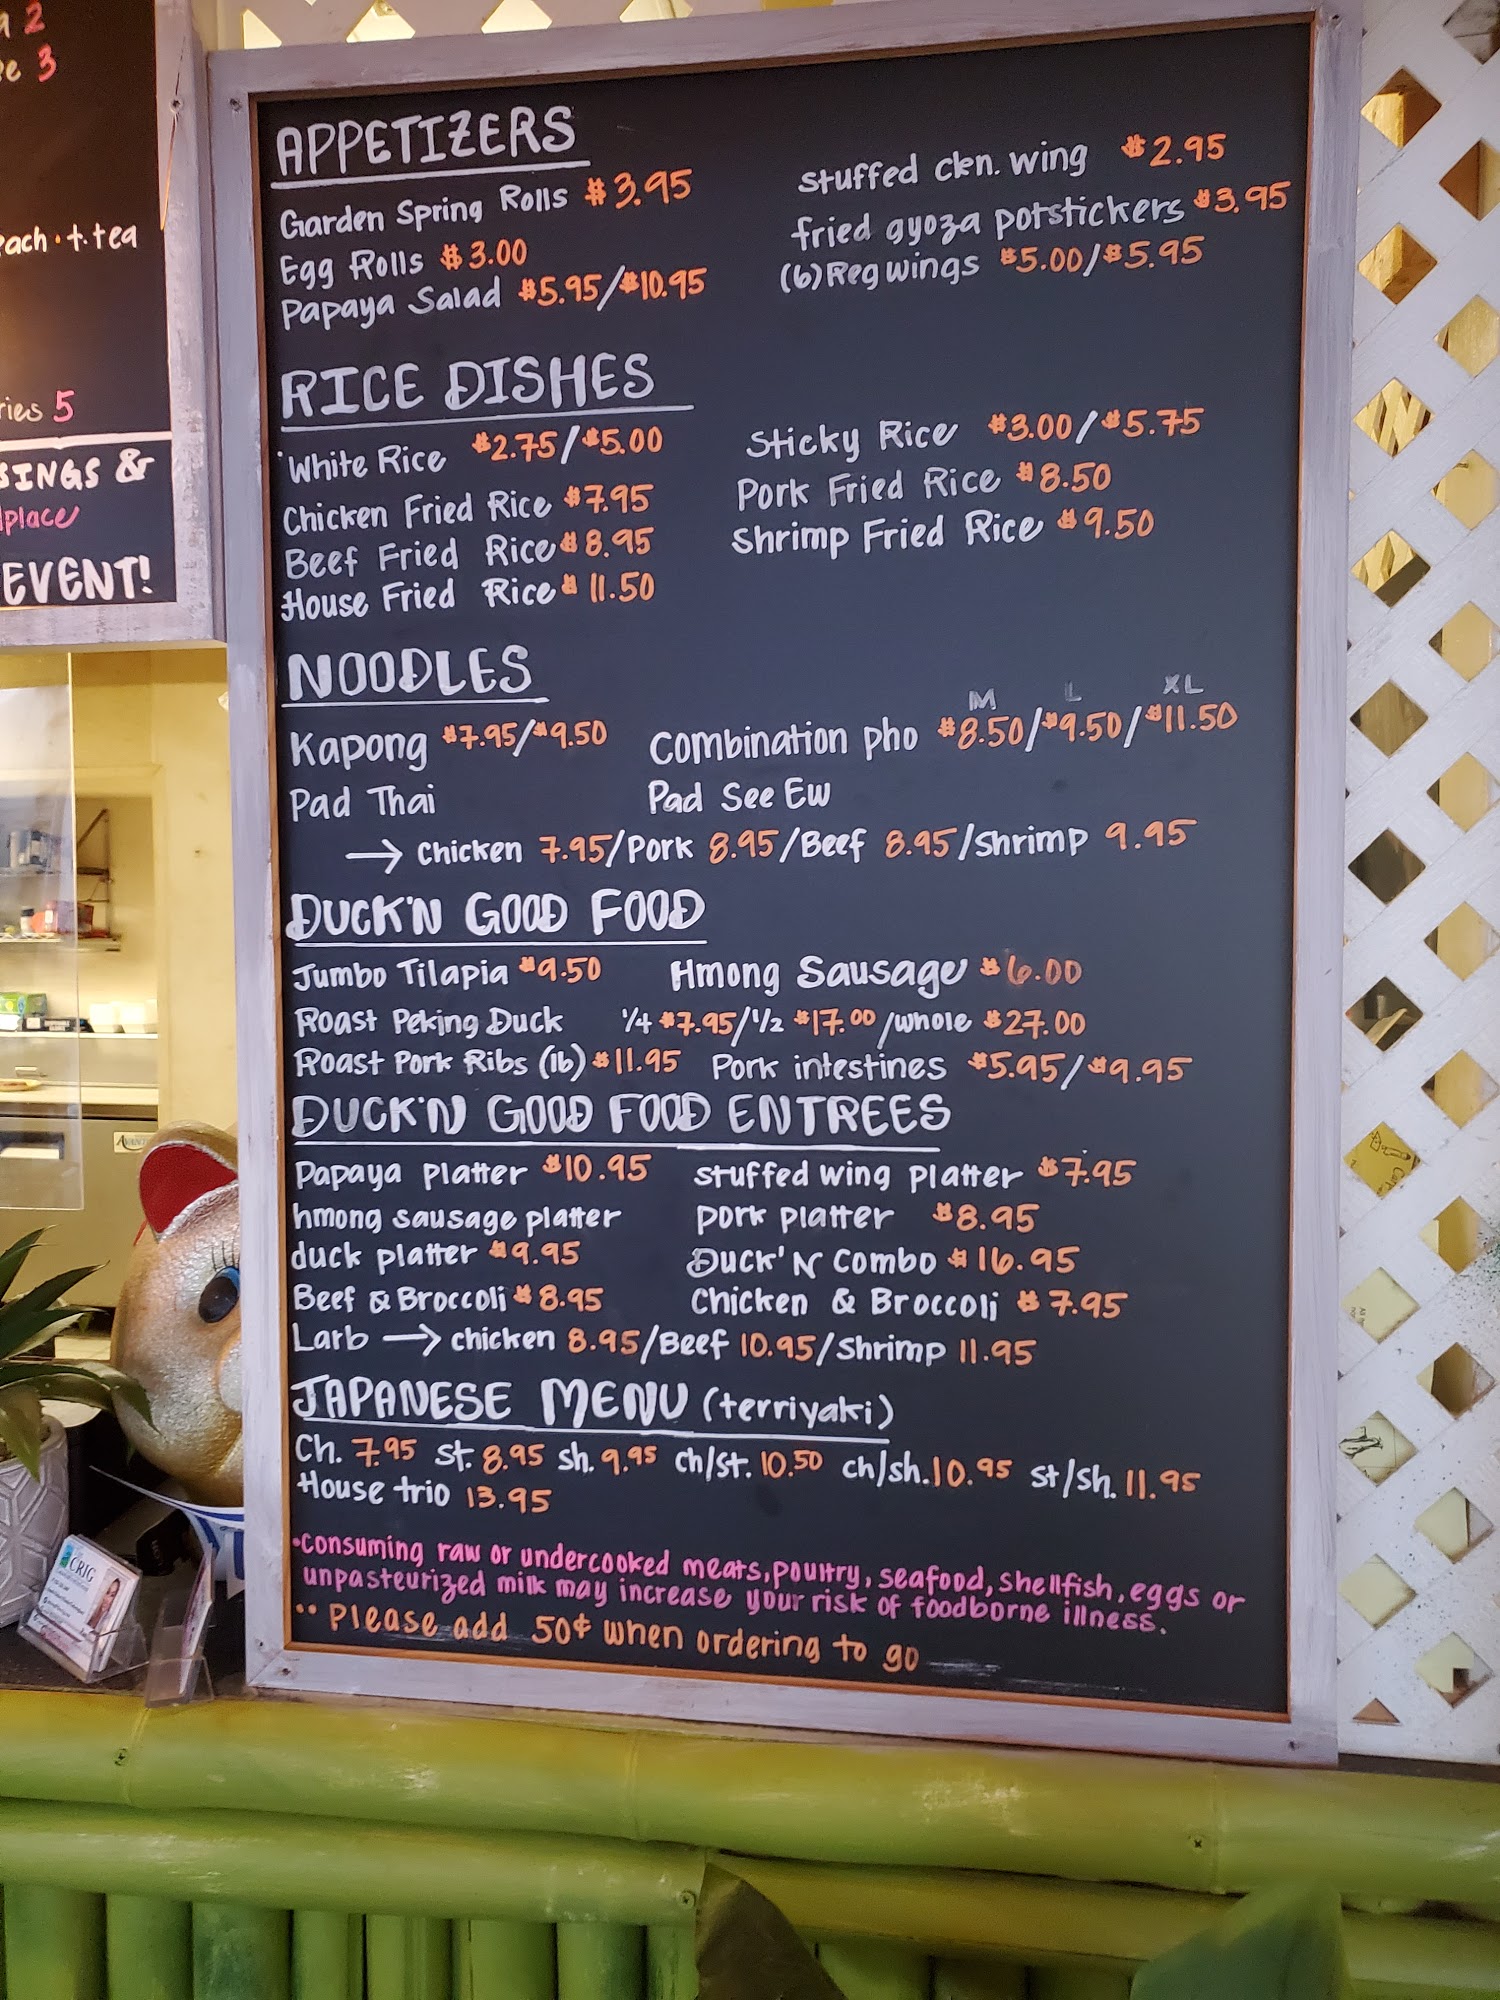 2
3
t.tea
5
SINGS &
EVENT!
APPETIZERS
Garden Spring Rolls $3.95
Egg Rolls $3.00
Papaya Salad $5.95/$10.95
stuffed ckn. wing $2.95
fried gyoza potstickers $3.95
(6) Reg wings $5.00/$5.95
RICE DISHES
White Rice $2.75/$5.00
Chicken Fried Rice $7.95
Beef Fried Rice $8.95
House Fried Rice $11.50
Sticky Rice $3.00/$5.75
Pork Fried Rice $8.50
Shrimp Fried Rice $9.50
NOODLES
M L XL
Kapong $7.95/$9.50 Combination pho $8.50/$9.50/$11.50
Pad Thai Pad See Ew
→ Chicken 7.95/Pork 8.95/Beef 8.95/Shrimp 9.95
DUCK'N GOOD FOOD
Jumbo Tilapia $9.50 Hmong Sausage $6.00
Roast Peking Duck 1/4 $7.95/1/2 $17.00/whole $27.00
Roast Pork Ribs (lb) $11.95 Pork intestines $5.95/$9.95
DUCK'N GOOD FOOD ENTREES
Papaya platter $10.95 stuffed wing platter $7.95
hmong sausage platter pork platter $8.95
duck platter $9.95 Duck'N Combo $16.95
Beef & Broccoli $8.95 Chicken & Broccoli $7.95
Larb → chicken 8.95/Beef 10.95/Shrimp 11.95
JAPANESE MENU (terriyaki)
Ch. 7.95 st. 8.95 sh. 9.95 ch/st. 10.50 ch/sh. 10.95 st/sh. 11.95
House trio 13.95
•Consuming raw or undercooked meats, poultry, seafood, shellfish, eggs or
unpasteurized milk may increase your risk of foodborne illness.
•• Please add 50¢ when ordering to go
CRIG